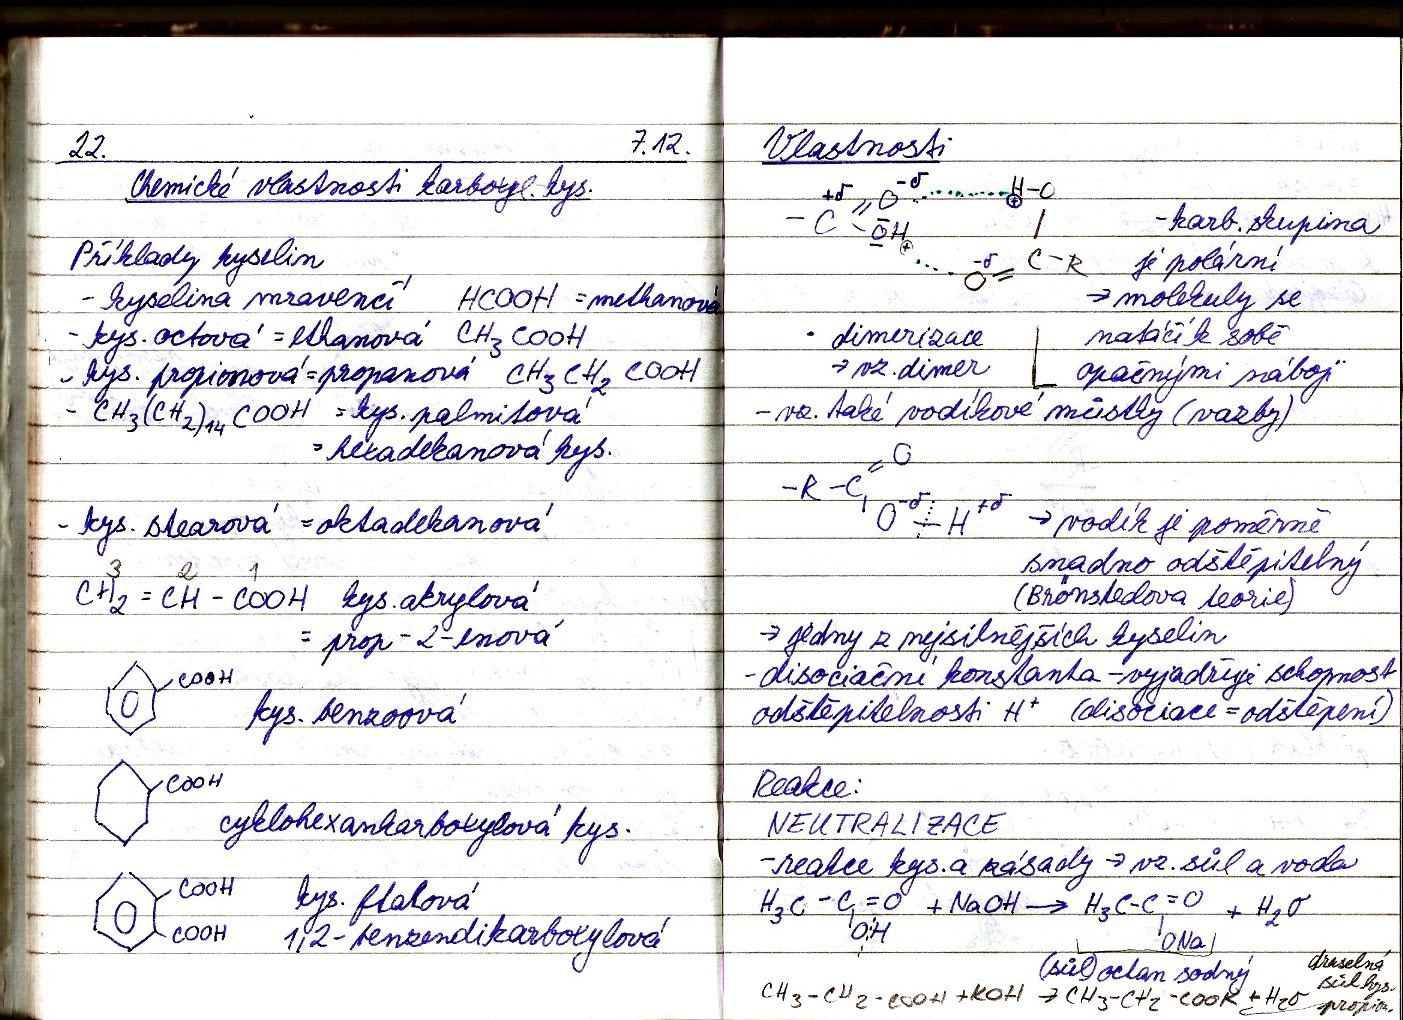 22. 7.12.
Chemické vlastnosti karboxyl. kys.
Příklady kyselin
- kyselina mravenčí HCOOH = methanová
- kys. octová = ethanová CH3COOH
- kys. propionová = propanová CH3CH2COOH
- CH3(CH2)14COOH = kys. palmitová
= hexadekanová kys.
- kys. stearová = oktadekanová
3 2 1
CH2 = CH - COOH kys. akrylová
= prop-2-enová
COOH
kys. benzoová
COOH
cyklohexankarboxylová kys.
COOH
kys. ftalová
COOH
1,2-benzendikarboxylová
Vlastnosti
+δ O -δ H-O
- C = OH
⊕ ⊕
-δ O = C-R
- karb. skupina
je polární
→ molekuly se
natáčí k sobě
opačnými náboji
• dimerizace
→ vz. dimer
- vz. také vodíkové můstky (vazby)
O
-R-C
O -δ - H +δ → vodík je poměrně
snadno odštěpitelný
(Brönstedova teorie)
→ jedny z nejsilnějších kyselin
- disociační konstanta - vyjadřuje schopnost
odštěpitelnosti H+ (disociace = odštěpení)
Reakce:
NEUTRALIZACE
- reakce kys. a zásady → vz. sůl a voda
H3C - C = O + NaOH → H3C - C = O + H2O
OH ONa
(sůl) octan sodný
CH3-CH2-COOH + KOH → CH3-CH2-COOK + H2O
draselná
sůl kys.
propion.